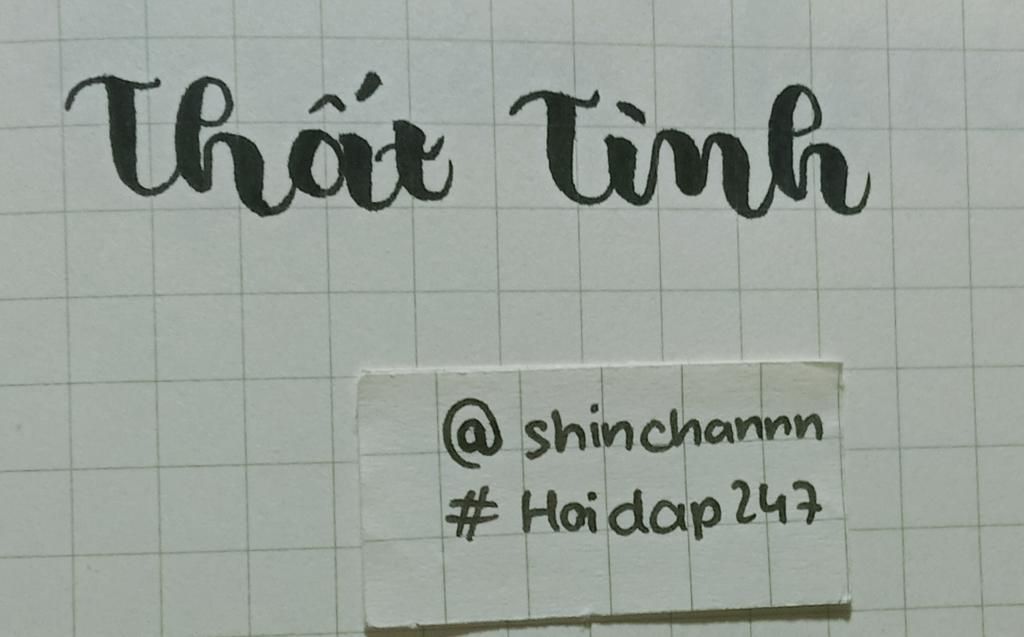 Thất Tình
@ shinchannn
# Hoidap247